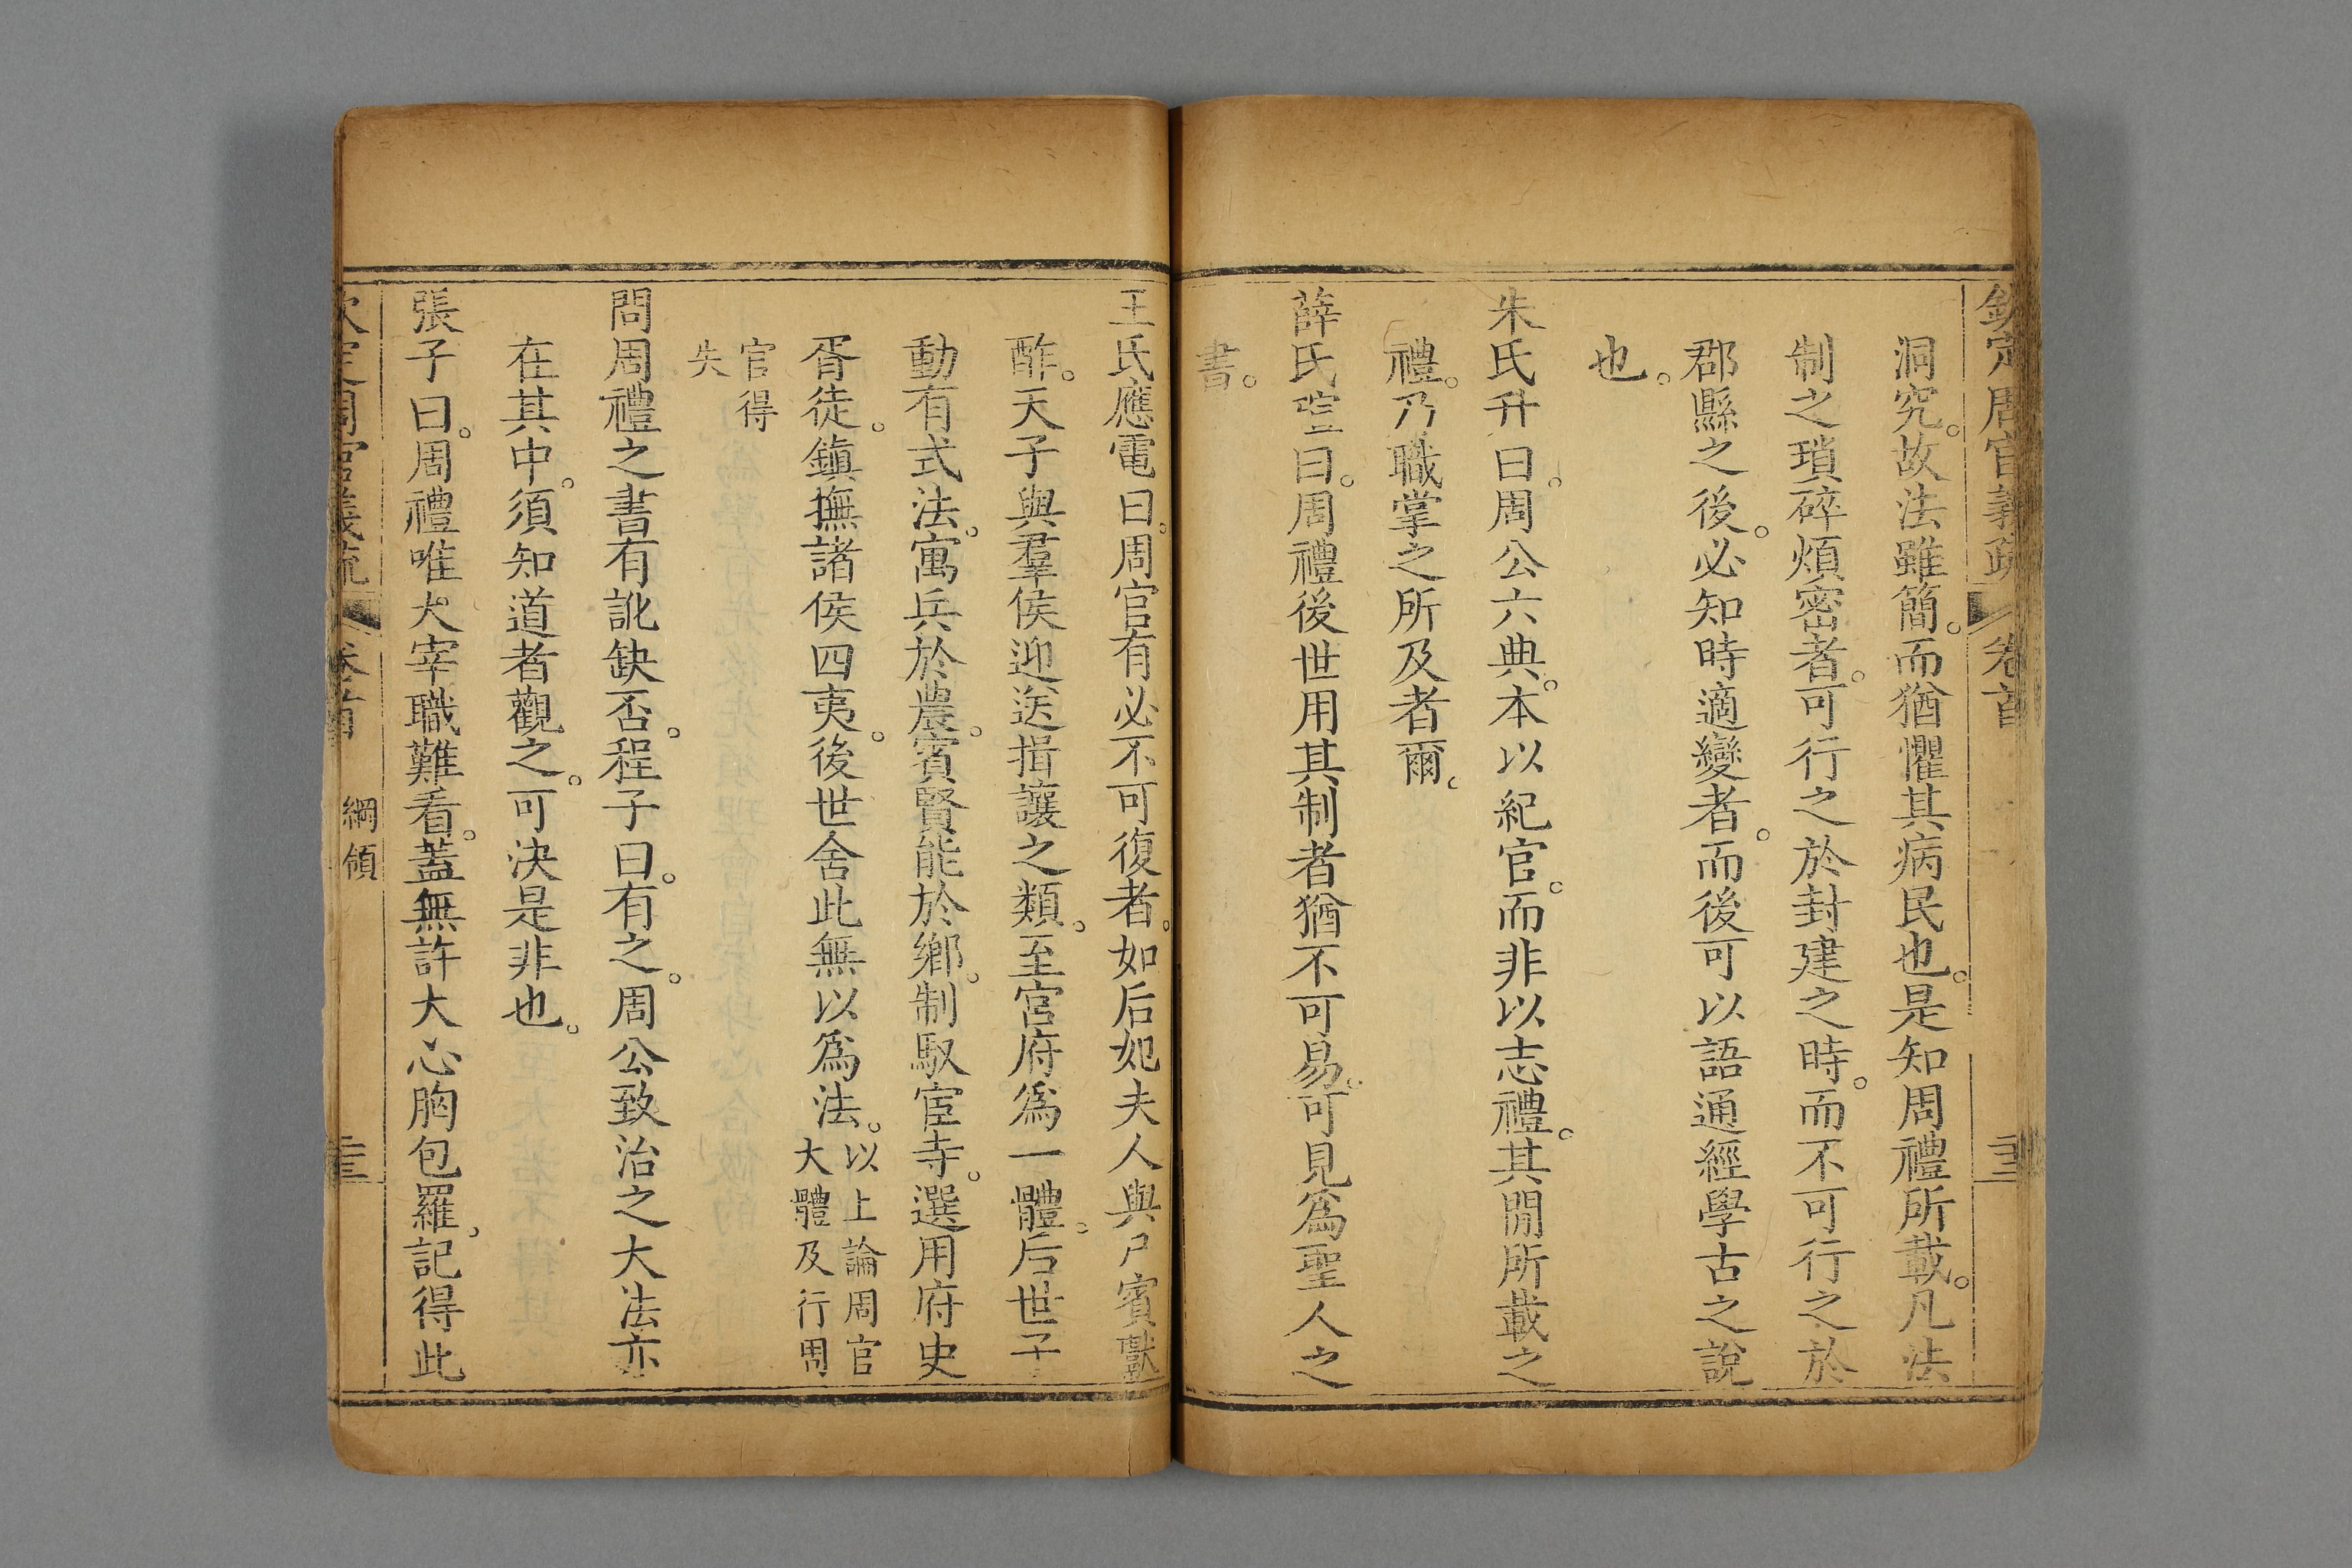 欽定周官義疏 卷首
洞究。故法雖簡。而猶懼其病民也。是知周禮所載。凡法
制之瑣碎煩密者。可行之於封建之時。而不可行之於
郡縣之後。必知時適變者。而後可以語通經學古之說
也。
朱氏升曰。周公六典。本以紀官。而非以志禮。其閒所載之
禮。乃職掌之所及者爾。
薛氏瑄曰。周禮後世用其制者猶不可易。可見爲聖人之
書。
王氏應電曰。周官有必不可復者。如后妃夫人與尸賓獻
酢。天子與羣侯迎送揖讓之類。至宮府爲一體。后世子
動有式法。寓兵於農。賓賢能於鄉。制馭宦寺。選用府史
胥徒。鎮撫諸侯四夷。後世舍此無以爲法。以上論周官
大體及行周
官得
失
問周禮之書有訛缺否。程子曰。有之。周公致治之大法亦
在其中。須知道者觀之。可決是非也。
張子曰。周禮唯大宰職難看。蓋無許大心胸包羅。記得此
欽定周官義疏 卷首 綱領